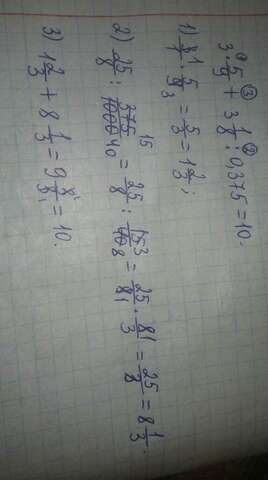 3 · 5/9 + 3 1/8 : 0,375 = 10.
1) 3/1 · 5/9 = 5/3 = 1 2/3;
2) 25/8 : 375/1000 = 25/8 : 15/40 = 25/8 · 8/3 = 25/3 = 8 1/3.
3) 1 2/3 + 8 1/3 = 9 3/3 = 10.